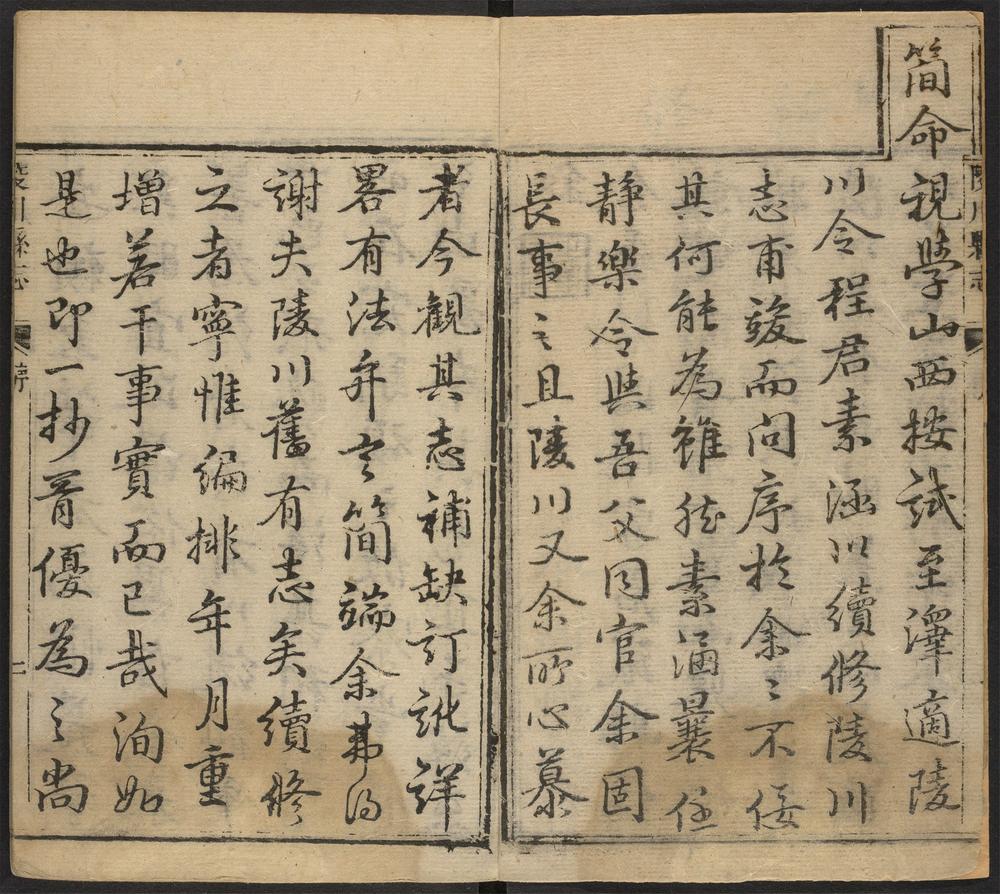 簡命視學山西按試至澤適陵
川令程君素涵以續修陵川
志甫竣而問序於余余不佞
其何能為雖然素涵曩任
靜樂令與吾父同官余固
長事之且陵川又余所心慕
者今觀其志補缺訂訛詳
畧有法弁言簡端余弗得
謝夫陵川舊有志矣續修
之者寧惟編排年月重
增若干事實而已哉洵如
是也即一抄胥優為之尚
陵川縣志
序
陵川縣志